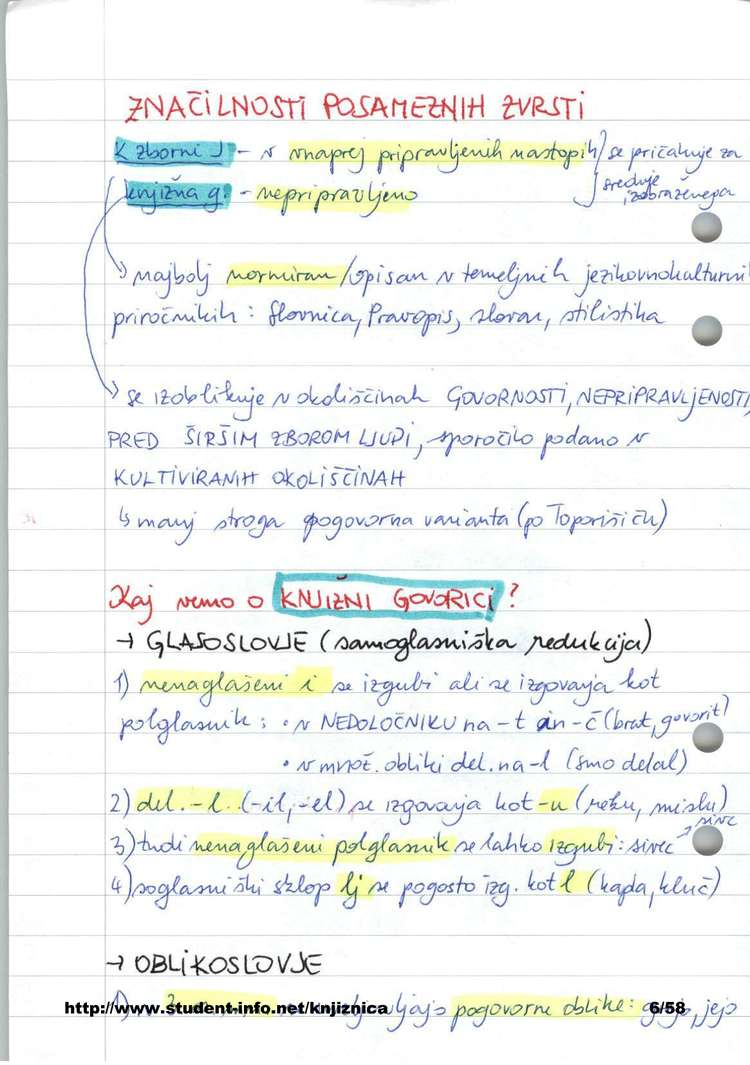 ZNAČILNOSTI POSAMEZNIH ZVRSTI
K zborni J - v vnaprej pripravljenih nastopih / se pričakuje za
knjižna g. - nepripravljeno
srednje
izobraženega
najbolj normiran / opisan v temeljnih jezikovnokulturni
priročnikih: Slovnica, Pravopis, slovar, stilistika
se izoblikuje v okoliščinah GOVORNOSTI, NEPRIPRAVLJENOSTI,
PRED ŠIRŠIM ZBOROM LJUDI, sporočilo podano v
KULTIVIRANIH OKOLIŠČINAH
↳ manj stroga pogovorna varianta (po Toporišiču)
Kaj vemo o KNJIŽNI GOVORICI?
→ GLASOSLOVJE (samoglasniška redukcija)
1) nenaglašeni i se izgubi ali se izgovarja kot
polglasnik: • v NEDOLOČNIKU na -t in -č (brat, govorit)
• v množ. obliki del. na -l (smo delal)
2) del. -l (-il, -el) se izgovarja kot -u (reku, mislu)
3) tudi nenaglašeni polglasnik se lahko izgubi: sivec → sivc
4) soglasniški sklop lj se pogosto izg. kot l (kapla, kluč)
→ OBLIKOSLOVJE
1) pogovorne oblike: grejo, jejo
http://www.student-info.net/knjiznica 6/58